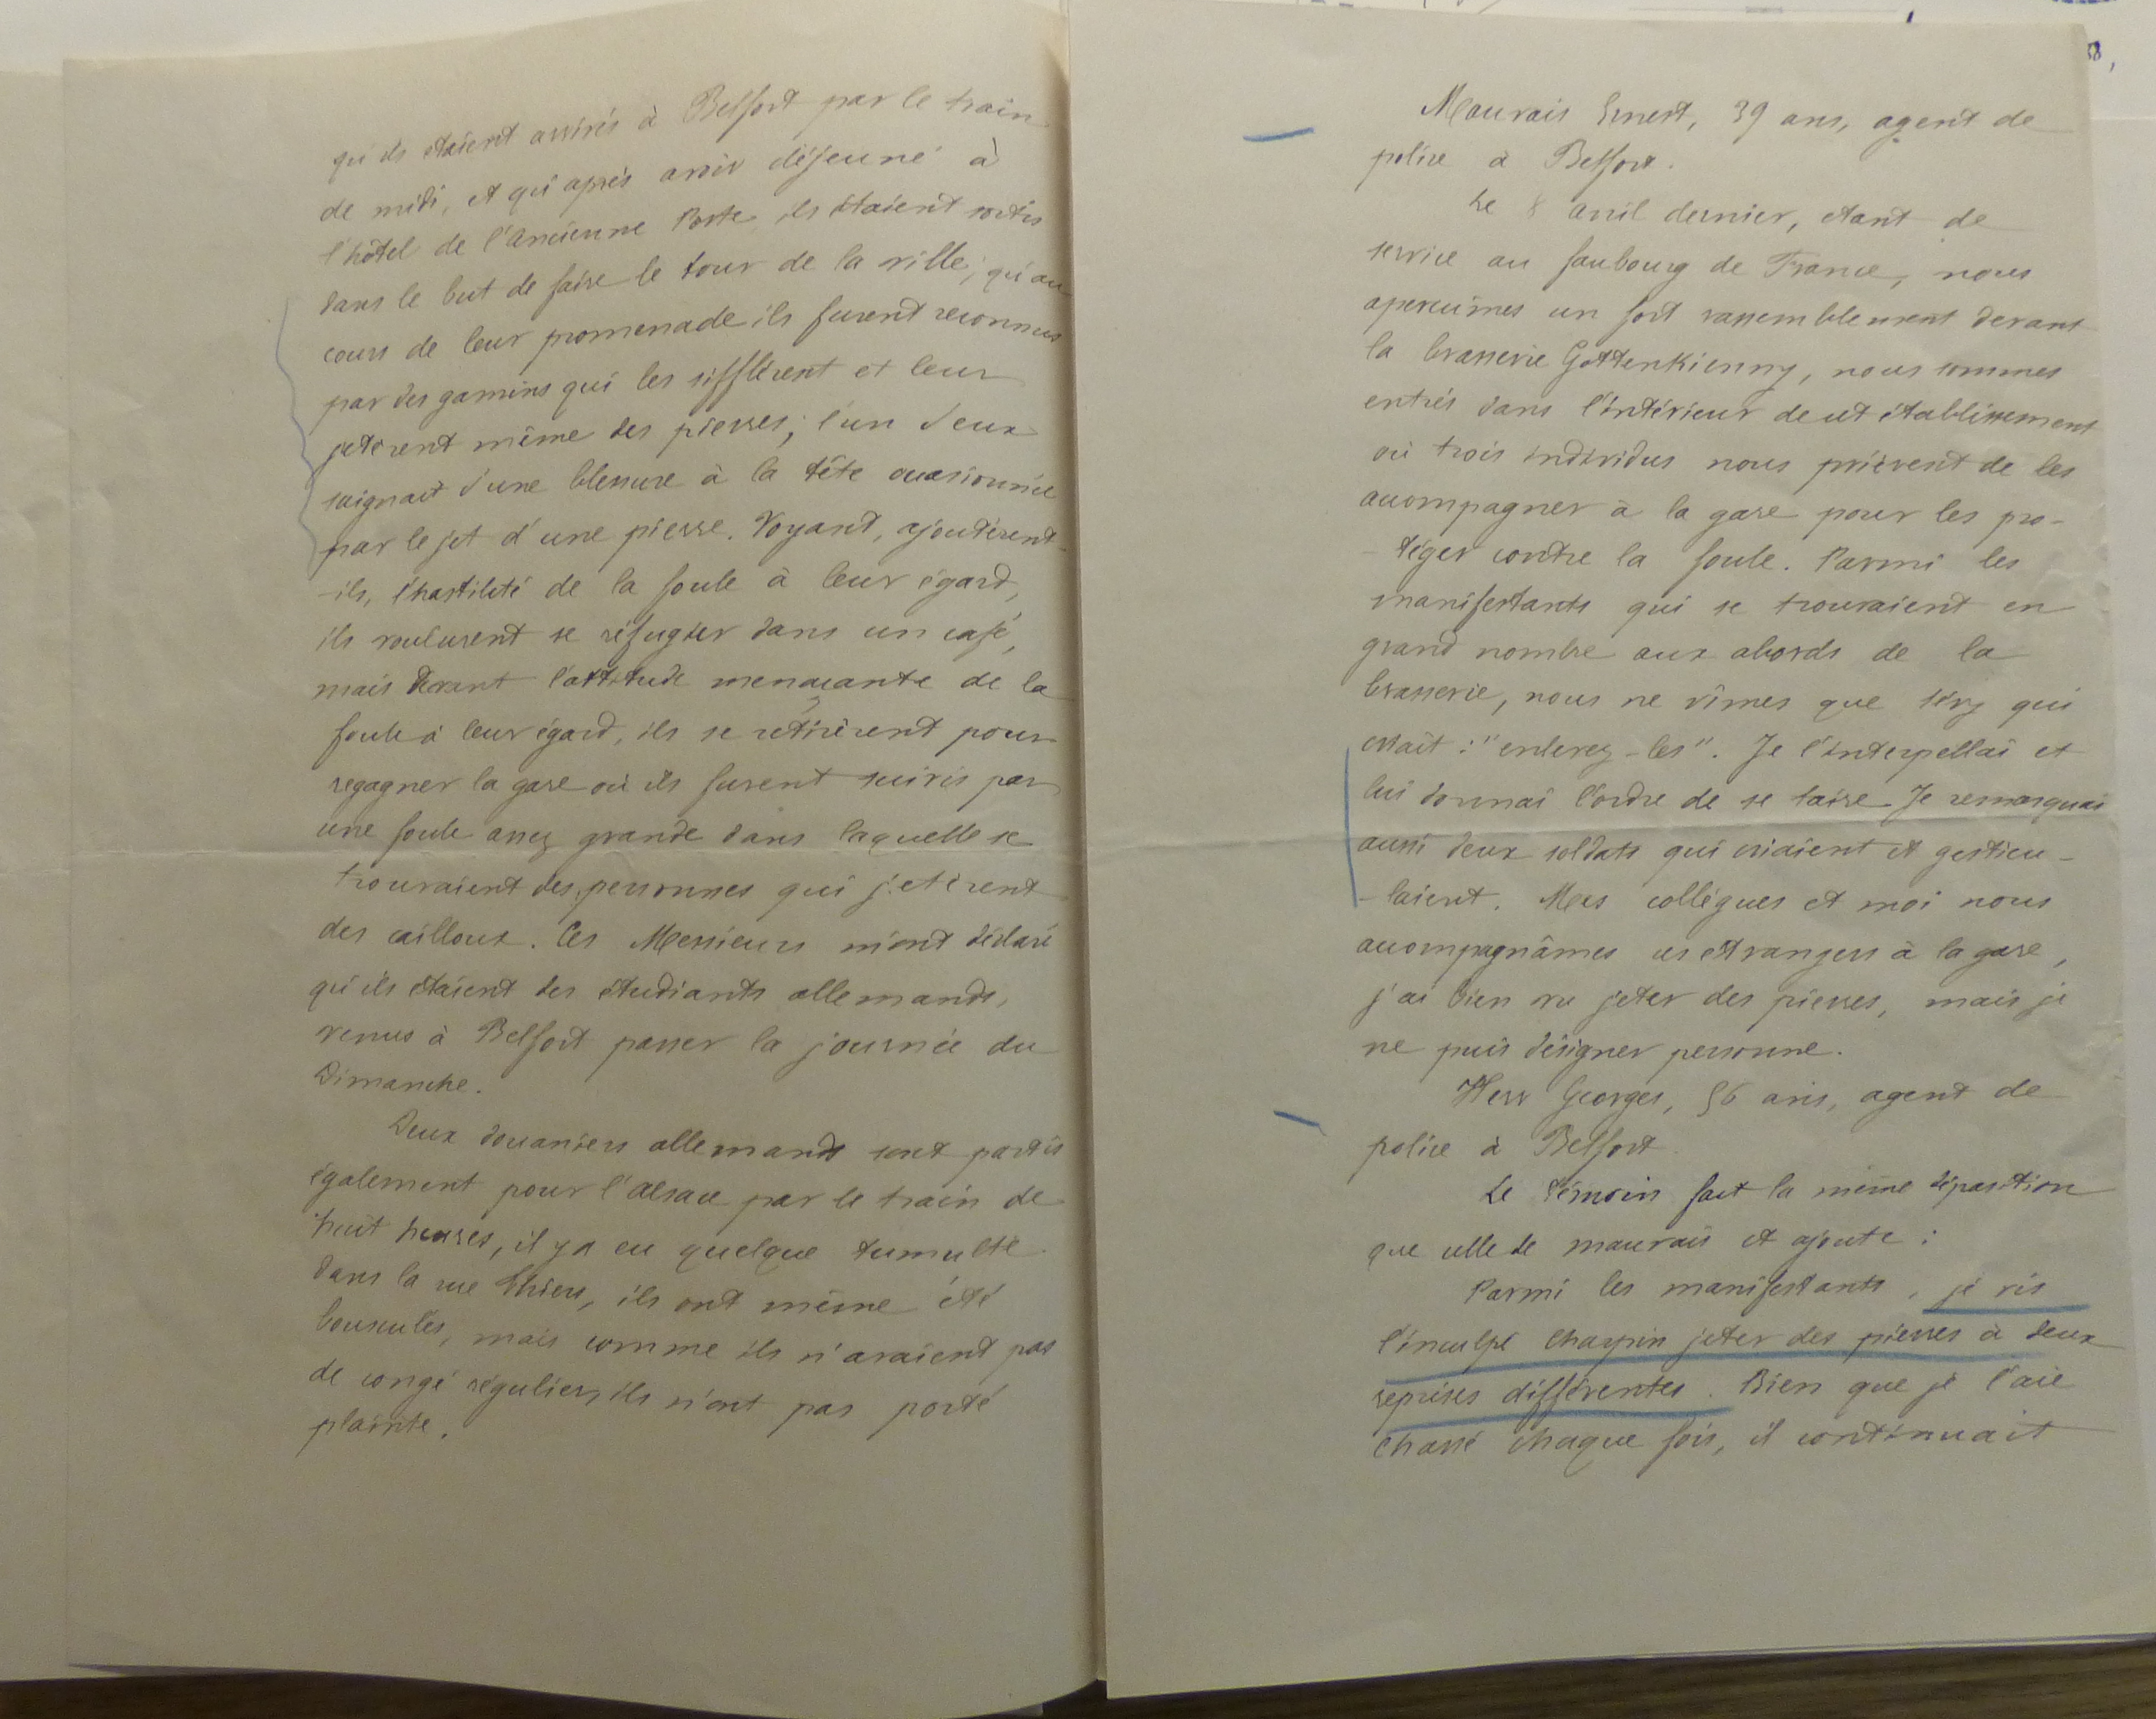 qu'ils étaient arrivés à Belfort par le train
de midi, et qu'après avoir déjeuné à
l'hôtel de l'Ancienne Poste, ils étaient sortis
dans le but de faire le tour de la ville; qu'au
cours de leur promenade ils furent reconnus
par des gamins qui les sifflèrent et leur
jetèrent même des pierres; l'un d'eux
saignait d'une blessure à la tête occasionnée
par le jet d'une pierre. Voyant, ajoutèrent-
-ils, l'hostilité de la foule à leur égard,
ils voulurent se réfugier dans un café,
mais devant l'attitude menaçante de la
foule à leur égard, ils se retirèrent pour
regagner la gare où ils furent suivis par
une foule assez grande dans laquelle se
trouvaient des personnes qui jetèrent
des cailloux. Ces Messieurs m'ont déclaré
qu'ils étaient des étudiants allemands,
venus à Belfort passer la journée du
Dimanche.
Deux douaniers allemands sont partis
également pour l'Alsace par le train de
huit heures, il y a eu quelque tumulte
dans la rue Thiers, ils ont même été
bousculés, mais comme ils n'avaient pas
de congé régulier, ils n'ont pas porté
plainte.
Mauvais Ernest, 39 ans, agent de
police à Belfort.
Le 8 avril dernier, étant de
service au faubourg de France, nous
aperçûmes un fort rassemblement devant
la brasserie Gottenkienny, nous sommes
entrés dans l'intérieur de cet établissement
où trois individus nous prièrent de les
accompagner à la gare pour les pro-
-téger contre la foule. Parmi les
manifestants qui se trouvaient en
grand nombre aux abords de la
brasserie, nous ne vîmes que Séry qui
criait : "enlevez-les". Je l'interpellai et
lui donnai l'ordre de se taire. Je remarquai
aussi deux soldats qui criaient et gesticu-
-laient. Mes collègues et moi nous
accompagnâmes ces étrangers à la gare,
j'ai bien vu jeter des pierres, mais je
ne puis désigner personne.
Herr Georges, 56 ans, agent de
police à Belfort.
Le témoin fait la même déposition
que celle de Mauvais et ajoute :
Parmi les manifestants, je vis
l'inculpé Chaypin jeter des pierres à deux
reprises différentes. Bien que je l'aie
chassé chaque fois, il continuait